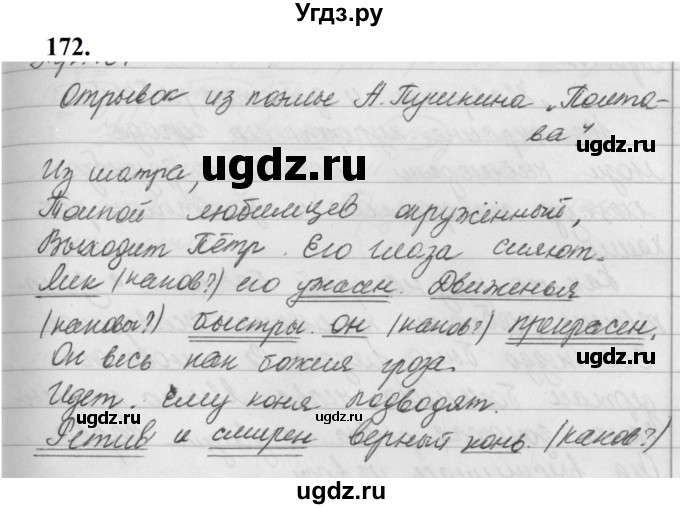 Угдз.ру
172.
Отрывок из поэмы А. Пушкина „Полта-
ва"
Из шатра,
ugdz.ru
ugdz.ru
Толпой любимцев окружённый,
Выходит Пётр. Его глаза сияют.
Лик (каков?) его ужасен. Движенья
ugdz.ru
(каковы?) быстры. он (каков?) прекрасен.
Он весь как божия гроза.
Идет. ему коня подводят.
ugdz.ru
ugdz.ru
Ретив и смирен верный конь. (каков?)
ugdz.ru
ugdz.ru